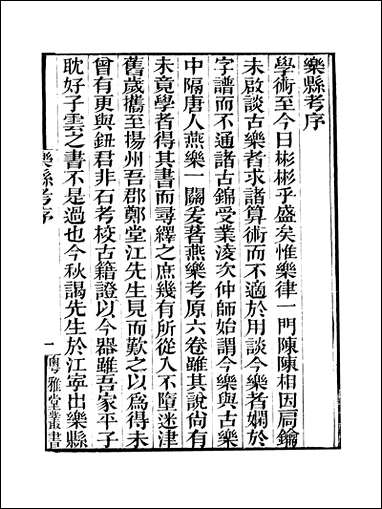 樂縣考序
學術至今日彬彬乎盛矣惟樂律一門陳陳相因扃鑰
未啟談古樂者求諸算術而不適於用談今樂者嫻於
字譜而不通諸古錦受業淩次仲師始謂今樂與古樂
中隔唐人燕樂一關爰著燕樂考原六卷雖其說尚有
未竟學者得其書而尋繹之庶幾有所從入不墮迷津
舊歲攜至揚州吾郡鄭堂江先生見而歎之以為得未
曾有更與鈕君非石考校古籍證以今器雖吾家平子
耽好子雲之書不是過也今秋謁先生於江寧出樂縣
樂縣考序
一
粵雅堂叢書